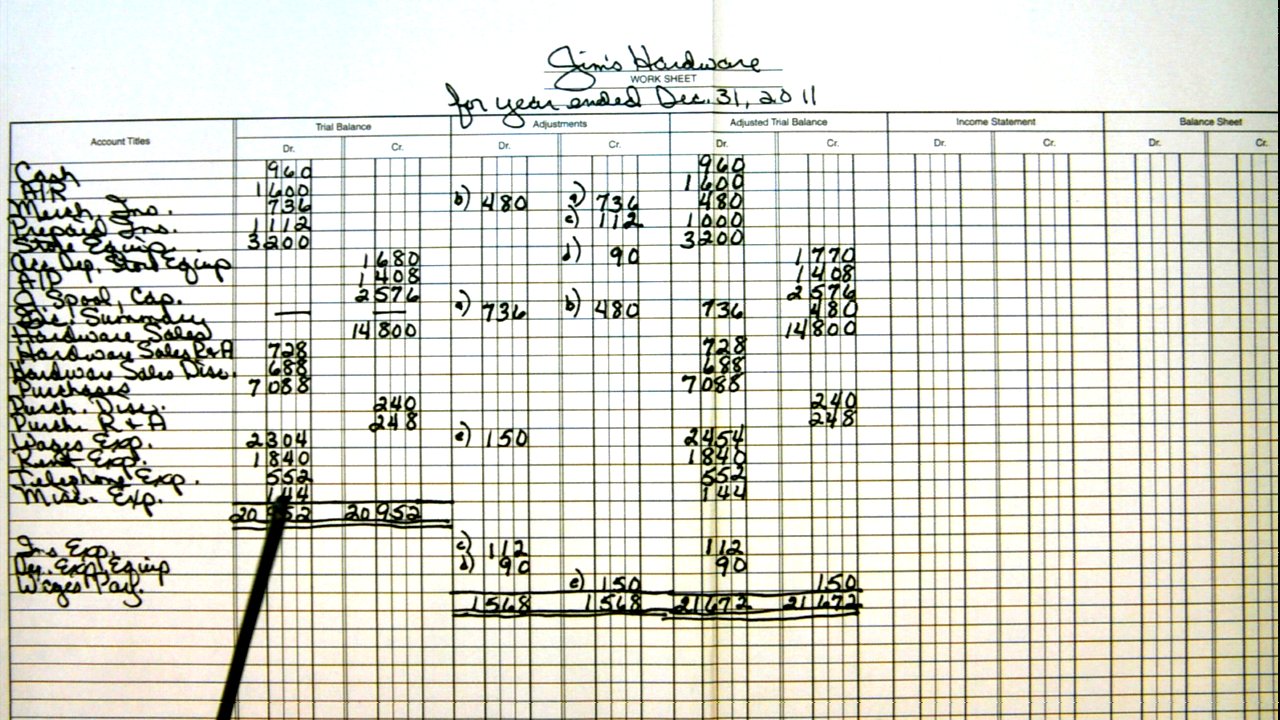 Jim's Hardware
WORK SHEET
for year ended Dec. 31, 2011
Account Titles Trial Balance Adjustments Adjusted Trial Balance Income Statement Balance Sheet
Dr. Cr. Dr. Cr. Dr. Cr. Dr. Cr. Dr. Cr.
Cash 960 960
A/R 1600 1600
Merch. Ins. 736 b) 480 a) 736 480
Prepaid Ins. 1112 c) 112 1000
Store Equip. 3200 3200
Acc. Dep. Store Equip 1680 d) 90 1770
A/P 1408 1408
J. Spool, Cap. 2576 2576
Summary — — a) 736 b) 480 736 480
Hardware Sales 14800 14800
Hardware Sales R+A 728 728
Hardware Sales Disc. 688 688
Purchases 7088 7088
Purch. Disc. 240 240
Purch. R + A 248 248
Wages Exp. 2304 e) 150 2454
Rent Exp. 1840 1840
Telephone Exp. 552 552
Misc. Exp. 144 144
20 952
Ins Exp. c) 112 112
Dep. Exp. Equip d) 90 90
Wages Pay. e) 150 150
1568 1568 21672 21672